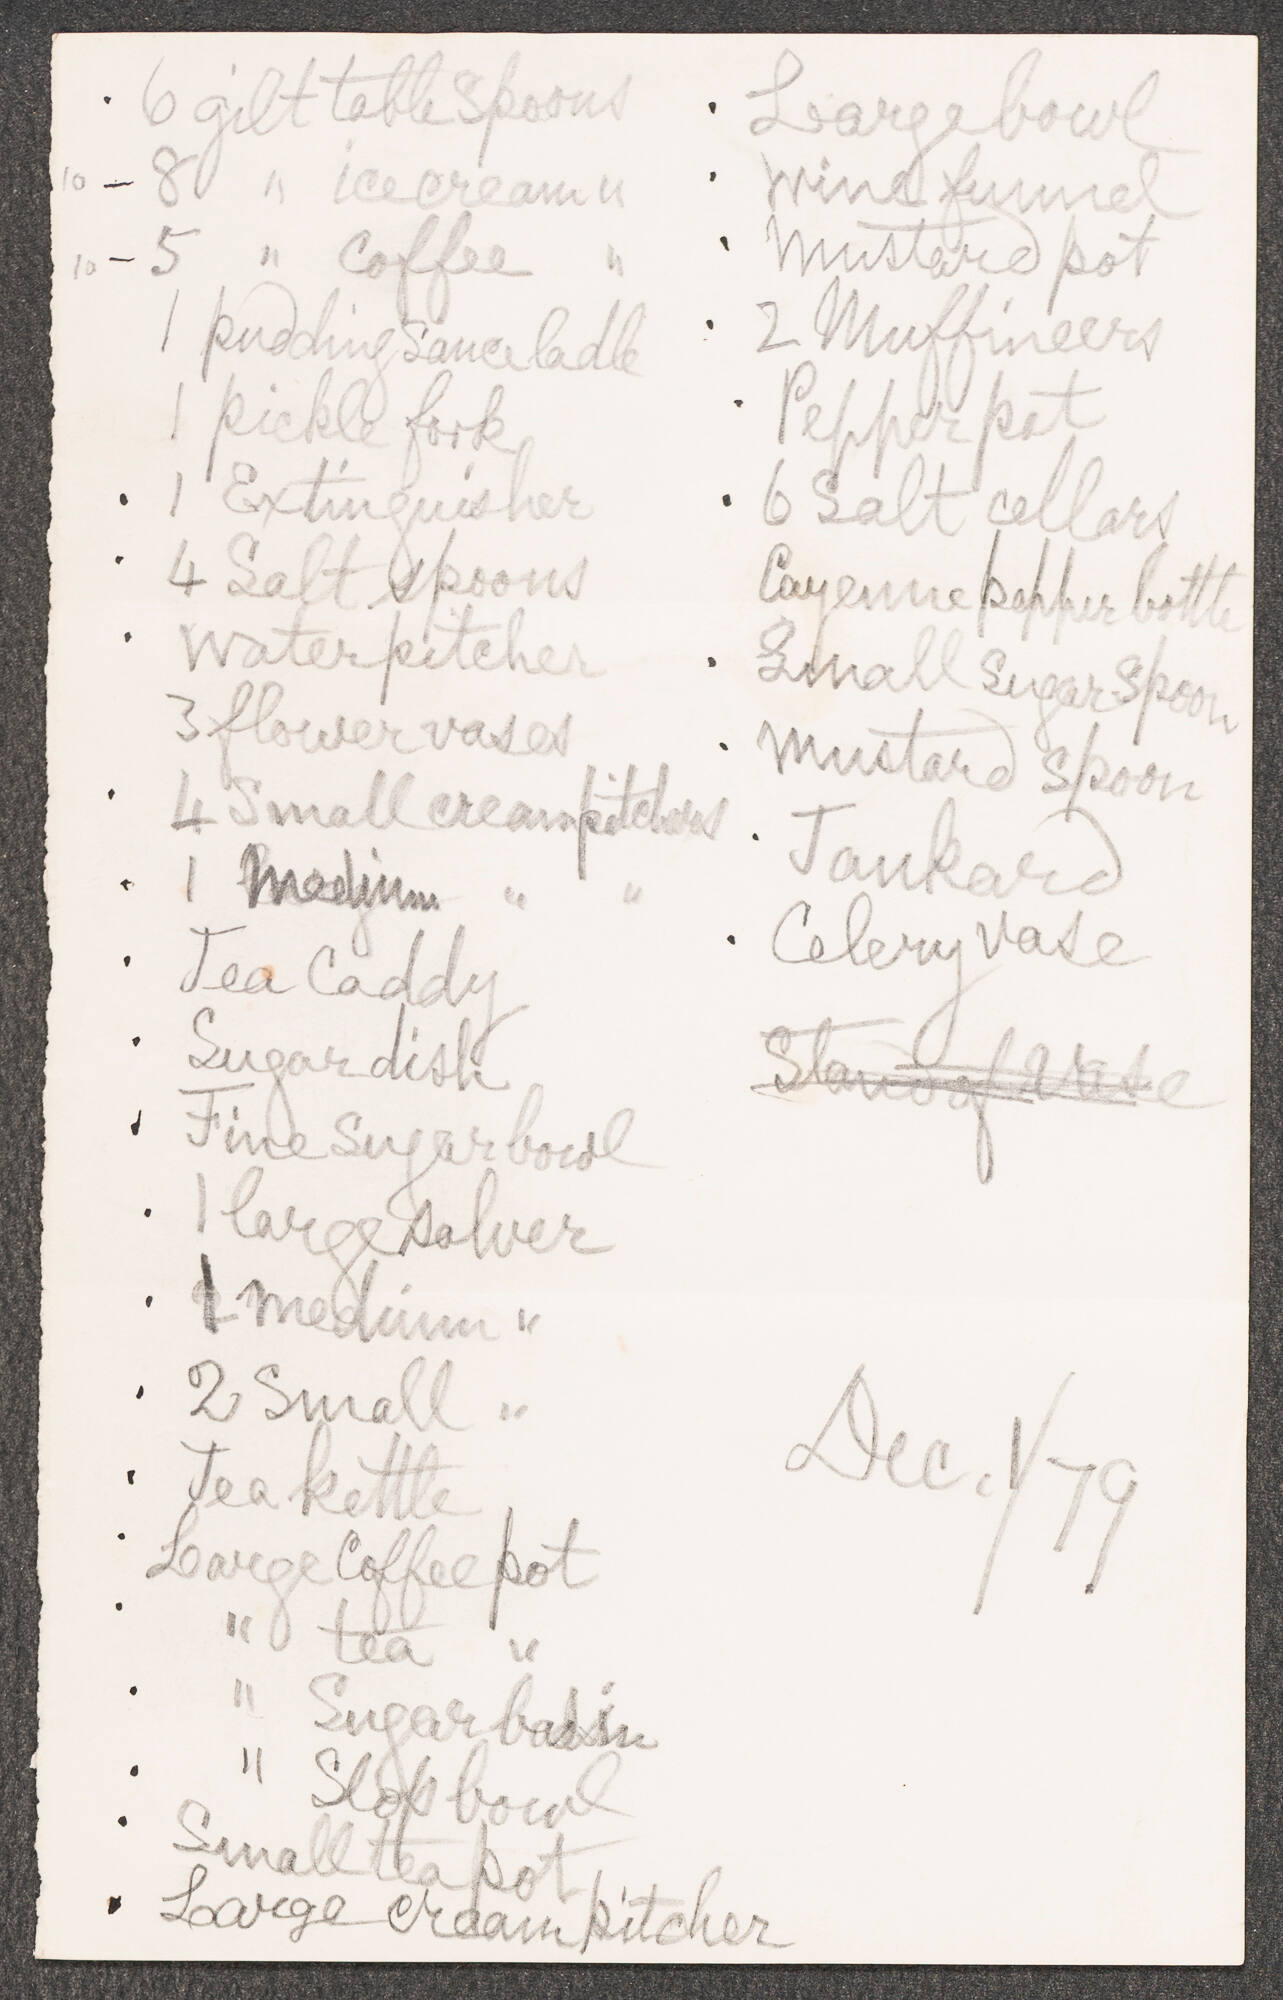 · 6 gilt table spoons
10 – 8 " ice cream "
10 – 5 " Coffee "
1 pudding Sauce ladle
1 pickle fork
· 1 Extinguisher
· 4 Salt spoons
· Water pitcher
3 flower vases
· 4 Small cream pitchers
· 1 Medium " "
· Tea Caddy
· Sugar dish
· Fine Sugar bowl
· 1 large salver
· 1 medium "
· 2 Small "
· Tea kettle
· Large Coffee pot
· " tea "
· " Sugar basin
· " Slop bowl
· Small tea pot
· Large cream pitcher
· Large bowl
· Wine funnel
· Mustard pot
· 2 Muffineers
· Pepper pot
· 6 Salt cellars
Cayenne pepper bottle
· Small Sugar Spoon
· Mustard Spoon
· Tankard
· Celery vase
Stand of Vase
Dec. 1/79